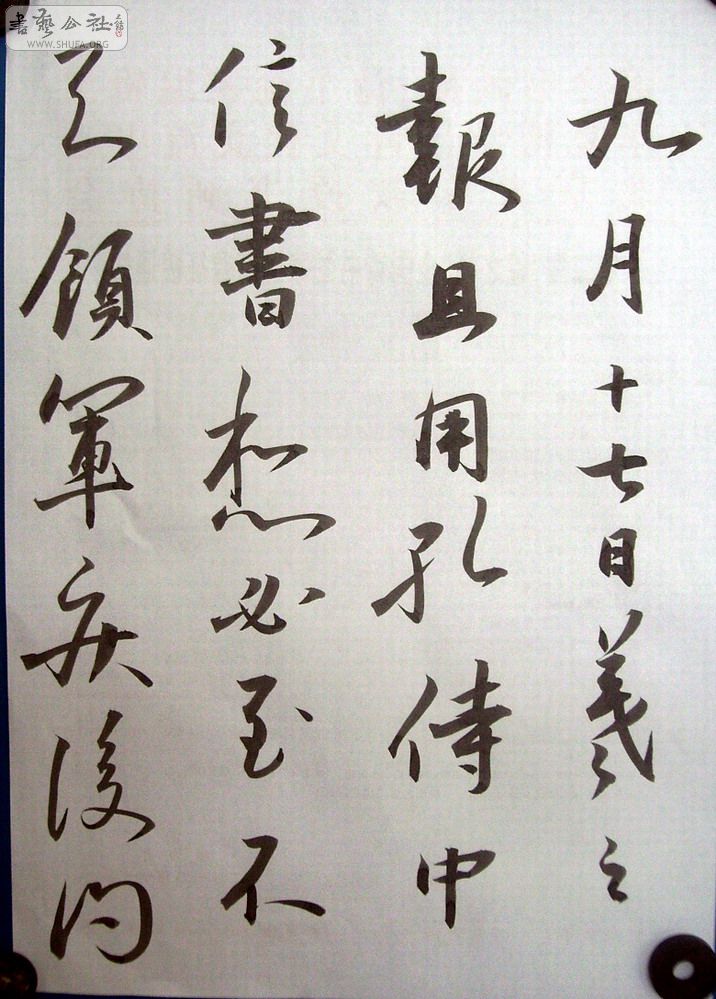 九月十七日羲之
報且因孔侍中
信書想必至不
知領軍疾後問
書藝公社
WWW.SHUFA.ORG